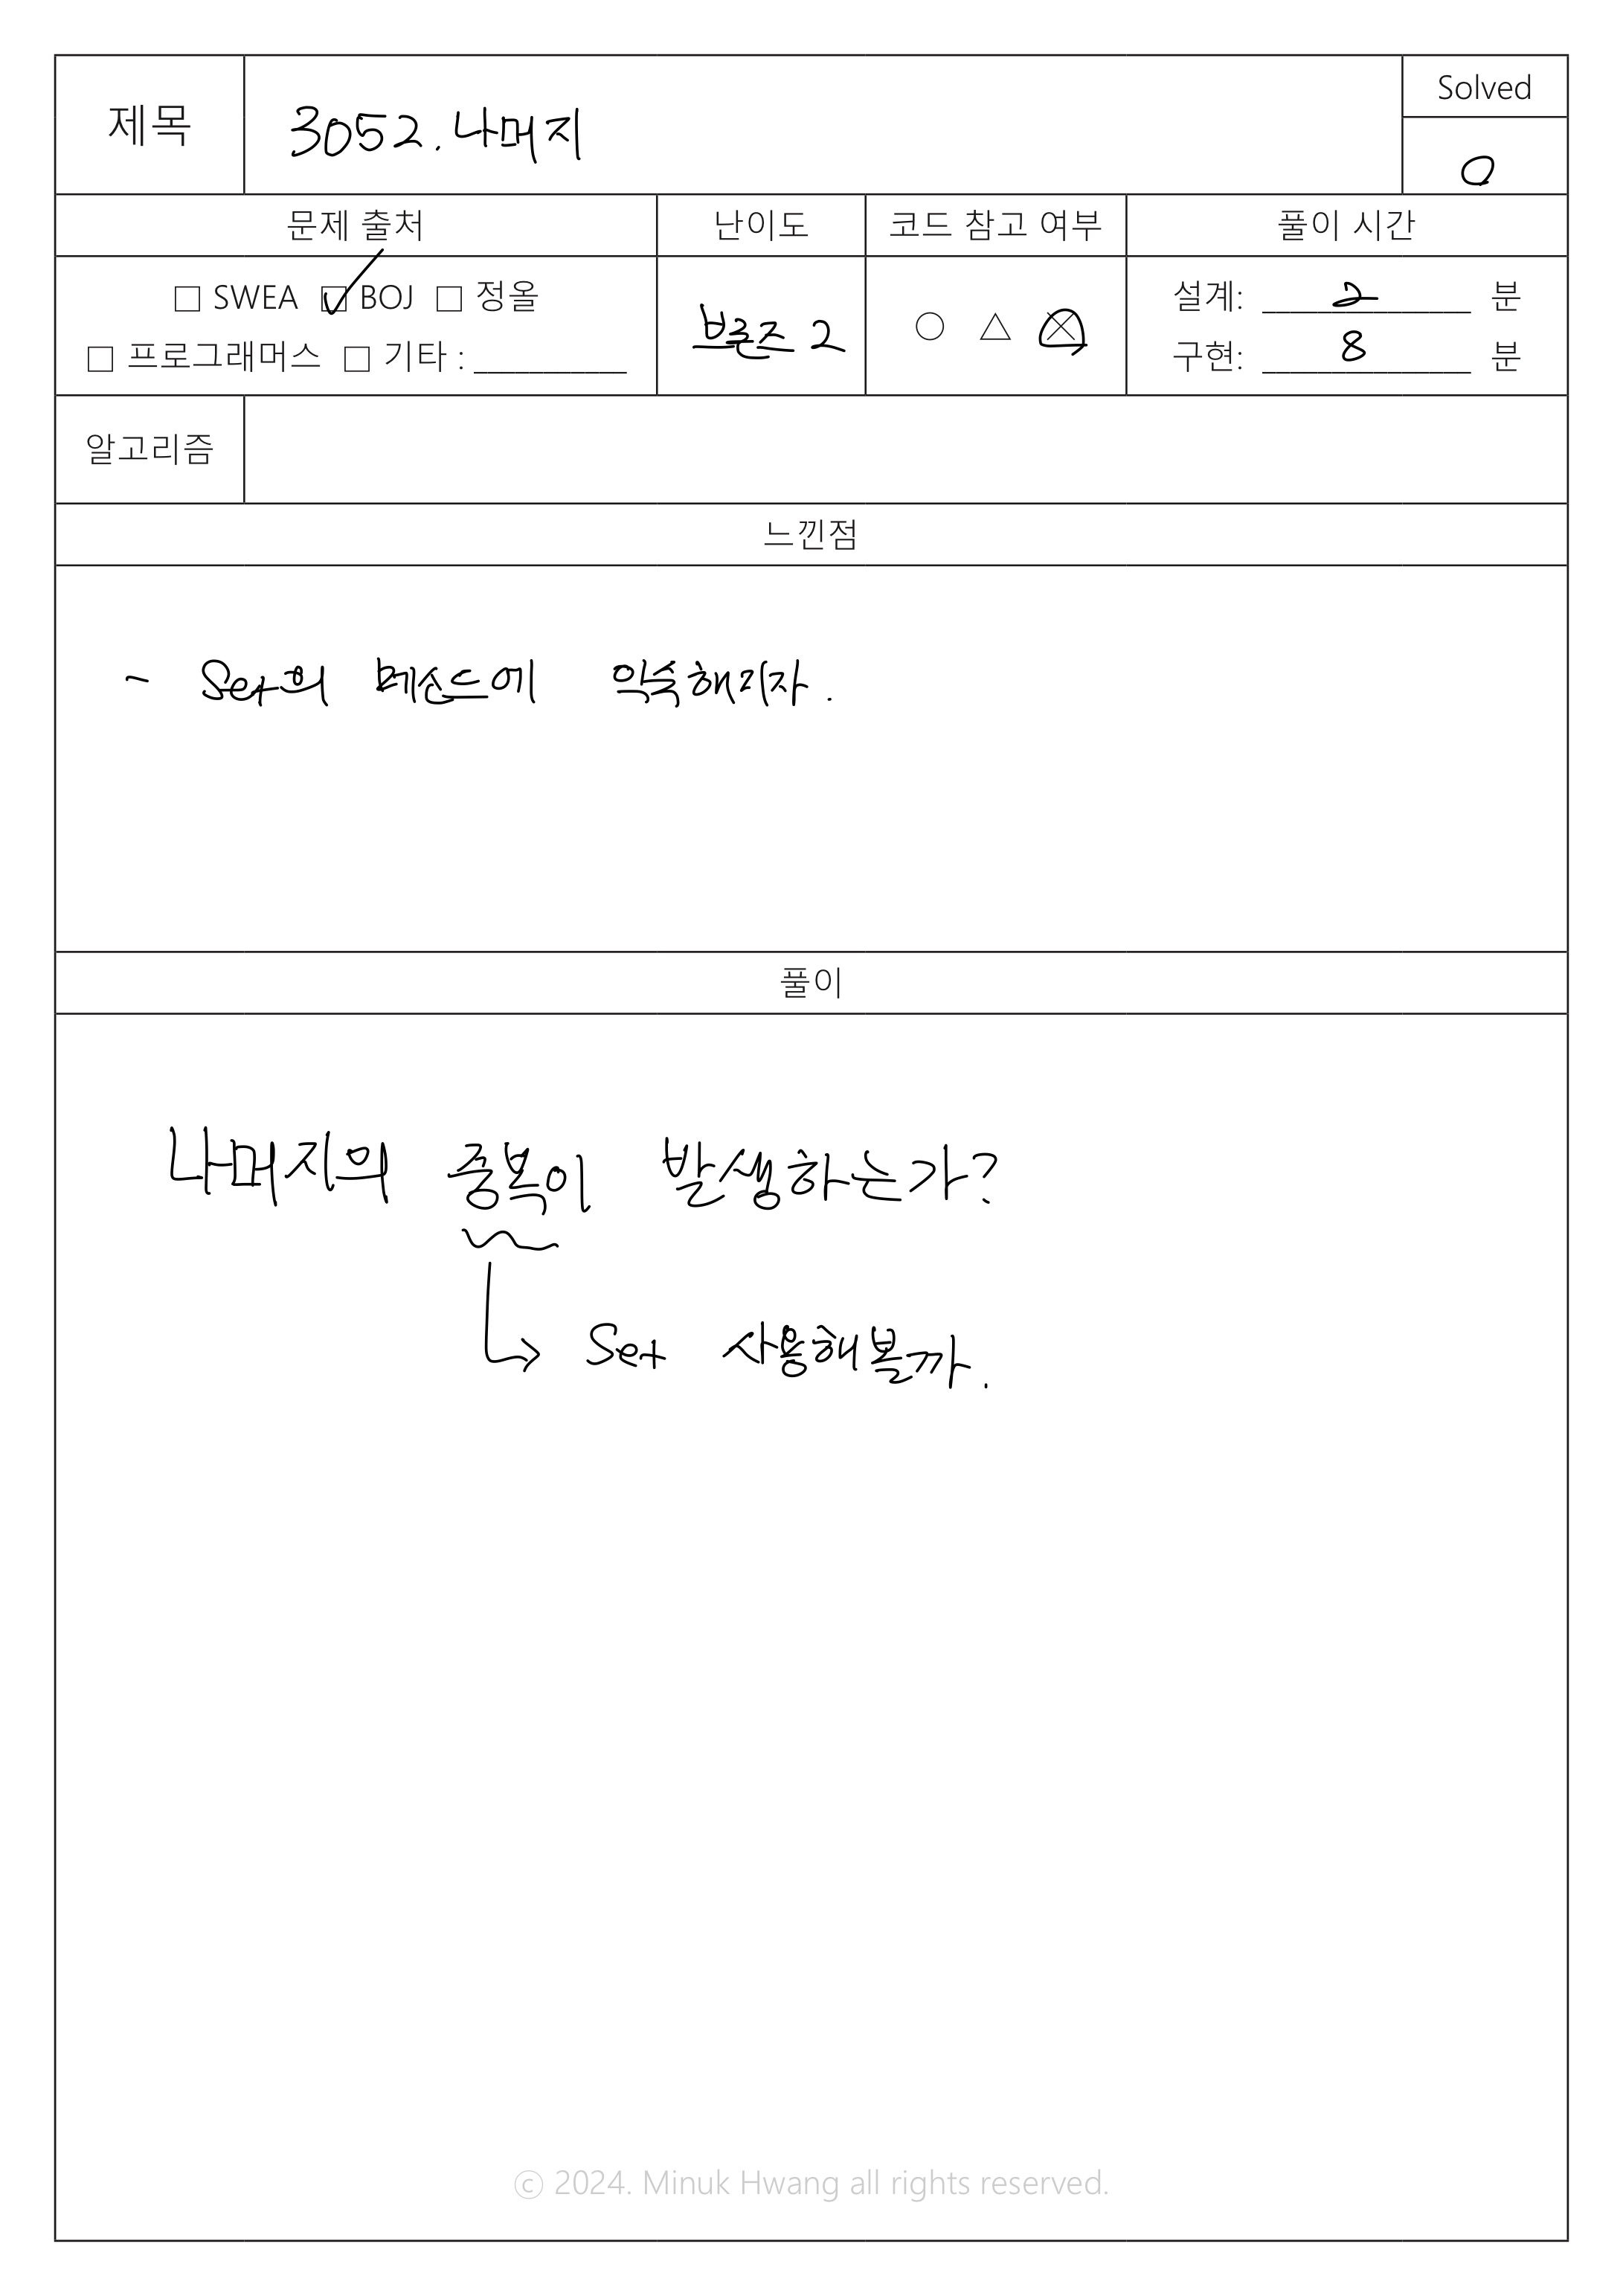 제목 3052.나머지 Solved
O
문제 출처 난이도 코드 참고 여부 풀이 시간
□ SWEA ☑ BOJ □ 정올
□ 프로그래머스 □ 기타 : ___________
브론즈 2
○ △ ╳
설계: 2 분
구현: 8 분
알고리즘
느낀점
- Set의 메소드에 익숙해지자.
풀이
나머지의 중복이 발생하는가?
↳ Set 사용해볼까.
ⓒ 2024. Minuk Hwang all rights reserved.